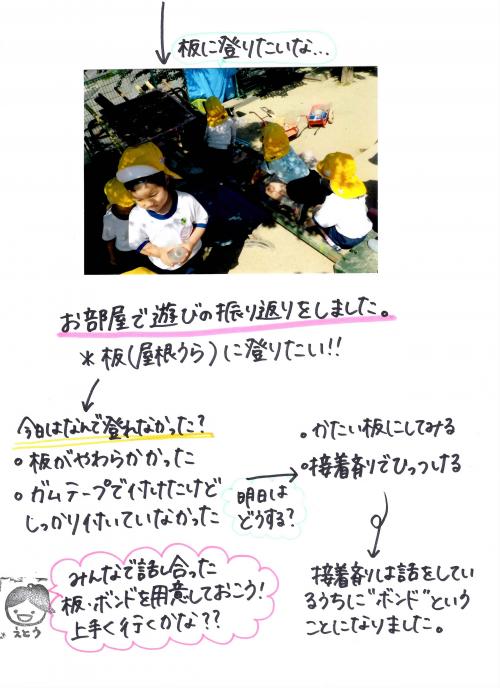 板に登りたいな...
お部屋で遊びの振り返りをしました。
*板(屋根うら)に登りたい!!
今日はなんで登れなかった?
・板がやわらかかった
・ガムテープで付けたけど
しっかり付いていなかった
明日は
どうする?
・かたい板にしてみる
・接着剤でひっつける
接着剤は話をしてい
るうちに"ボンド"という
ことになりました。
みんなで話し合った
板・ボンドを用意しておこう!
上手く行くかな??
えとう